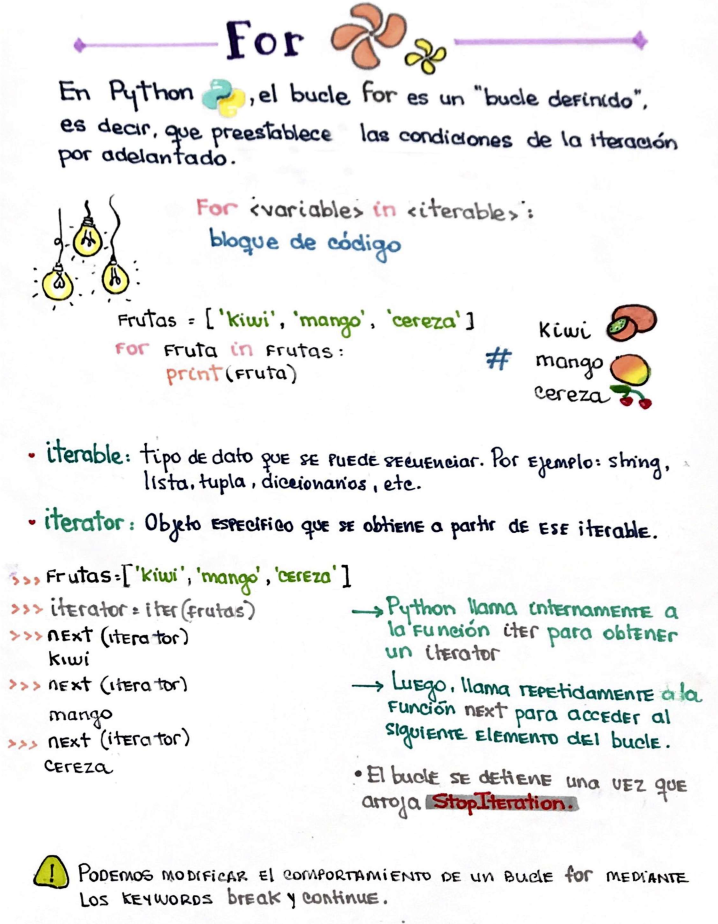 For
En Python, el bucle for es un "bucle definido",
es decir, que preestablece las condiciones de la iteración
por adelantado.
For <variable> in <iterable>:
bloque de código
Frutas = ['kiwi', 'mango', 'cereza']
for fruta in frutas:
print(fruta)
# kiwi
mango
cereza
• iterable: tipo de dato que se puede secuenciar. Por ejemplo: string,
lista, tupla, diccionarios, etc.
• iterator: Objeto específico que se obtiene a partir de ese iterable.
>>> Frutas=['kiwi', 'mango', 'cereza']
>>> iterator = iter(frutas)
>>> next (iterator)
kiwi
>>> next (iterator)
mango
>>> next (iterator)
cereza
→ Python llama internamente a
la función iter para obtener
un iterator
→ Luego, llama repetidamente a la
función next para acceder al
siguiente elemento del bucle.
• El bucle se detiene una vez que
arroja StopIteration.
! Podemos modificar el comportamiento de un bucle for mediante
los keywords break y continue.